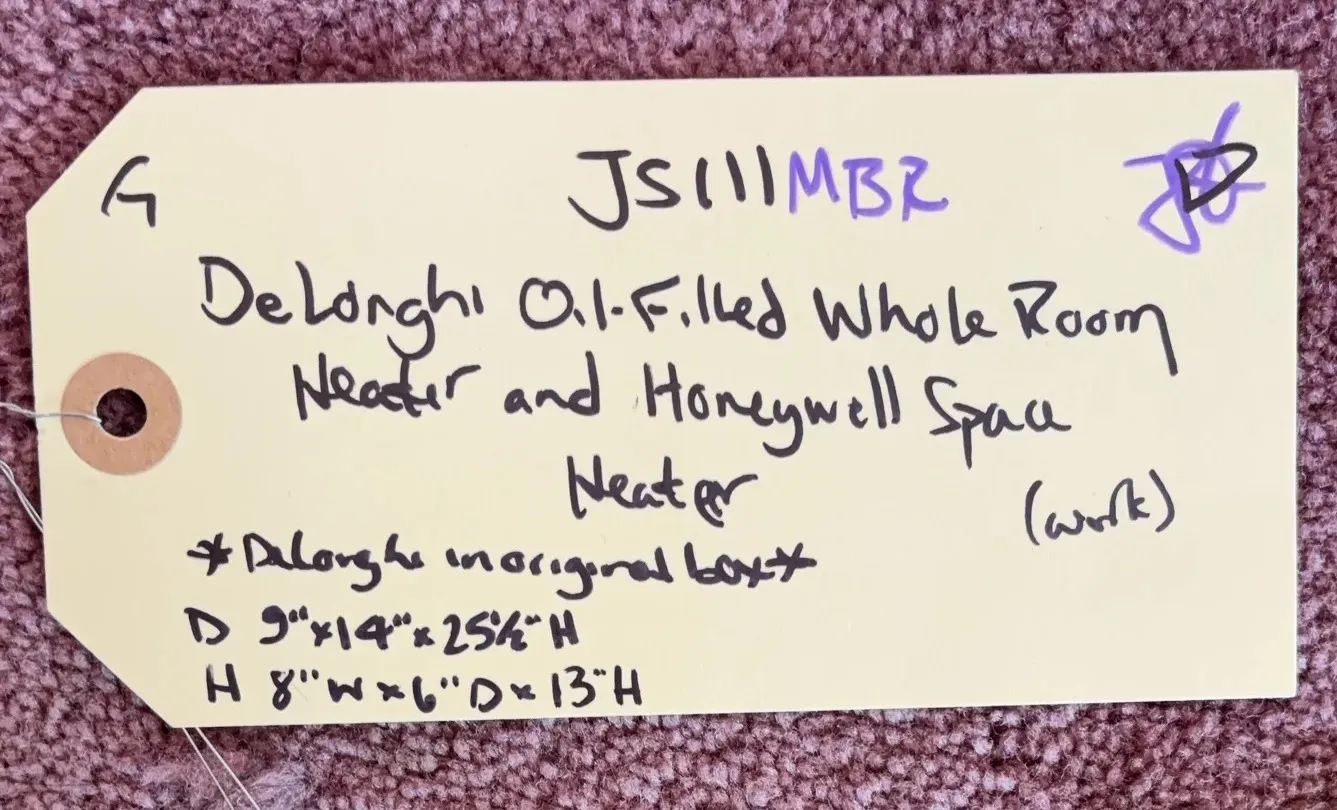 G JS111MBR D
DeLonghi Oil-Filled Whole Room
Heater and Honeywell Space
Heater (work)
*DeLonghi in original box*
D 9"x14"x25½" H
H 8"W x 6"D x 13"H